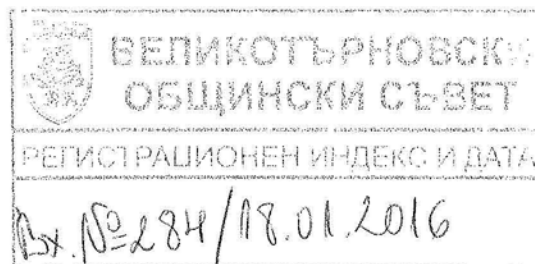 ВЕЛИКОТЪРНОВСКИ
ОБЩИНСКИ СЪВЕТ
РЕГИСТРАЦИОНЕН ИНДЕКС И ДАТА
Вх. № 284/18.01.2016